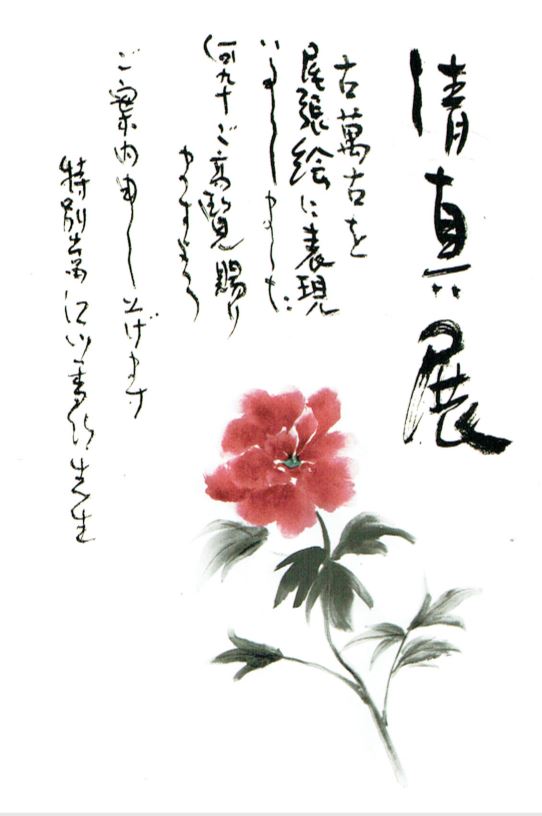 清真展
古萬古を
尾張絵に表現
いたしました
何卒ご高覧賜り
ますよう
ご案内申し上げます
特別出品 江川 先生